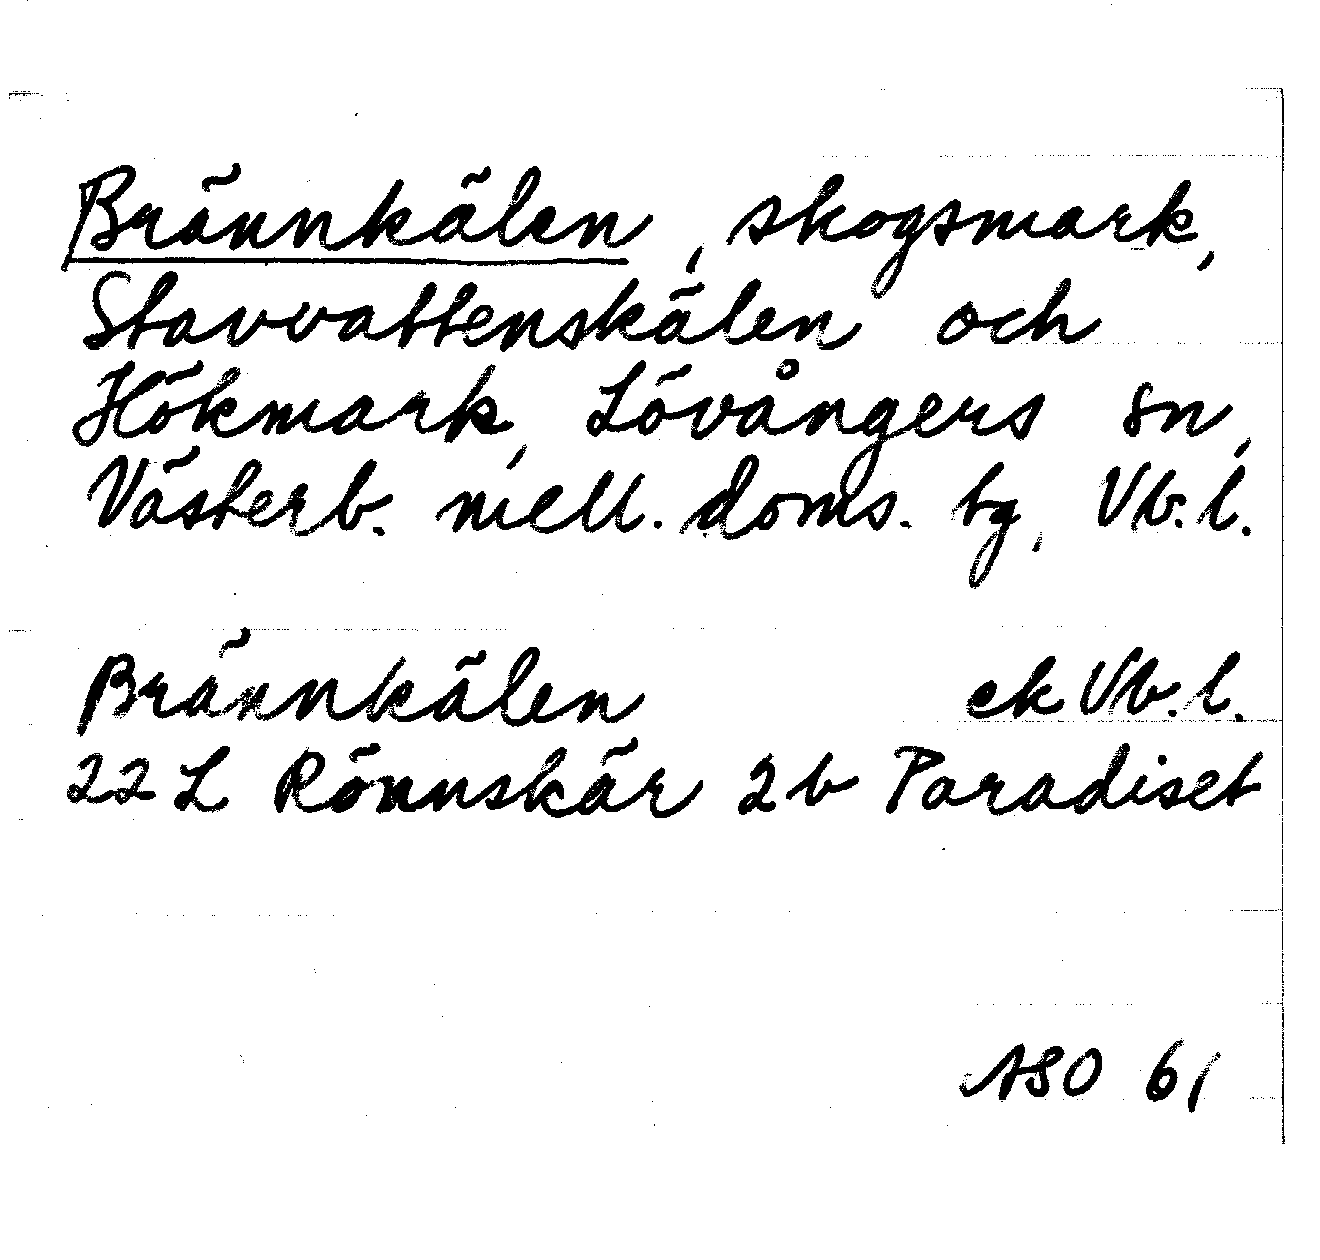 Brännkälen, skogsmark,
Stavvattenskälen och
Hökmark, Lövångers sn,
Västerb. mell. doms. tg, Vb. l.
Brännkälen ek Vb. l.
22 L Rönnskär 2 b Paradiset
ASO 61